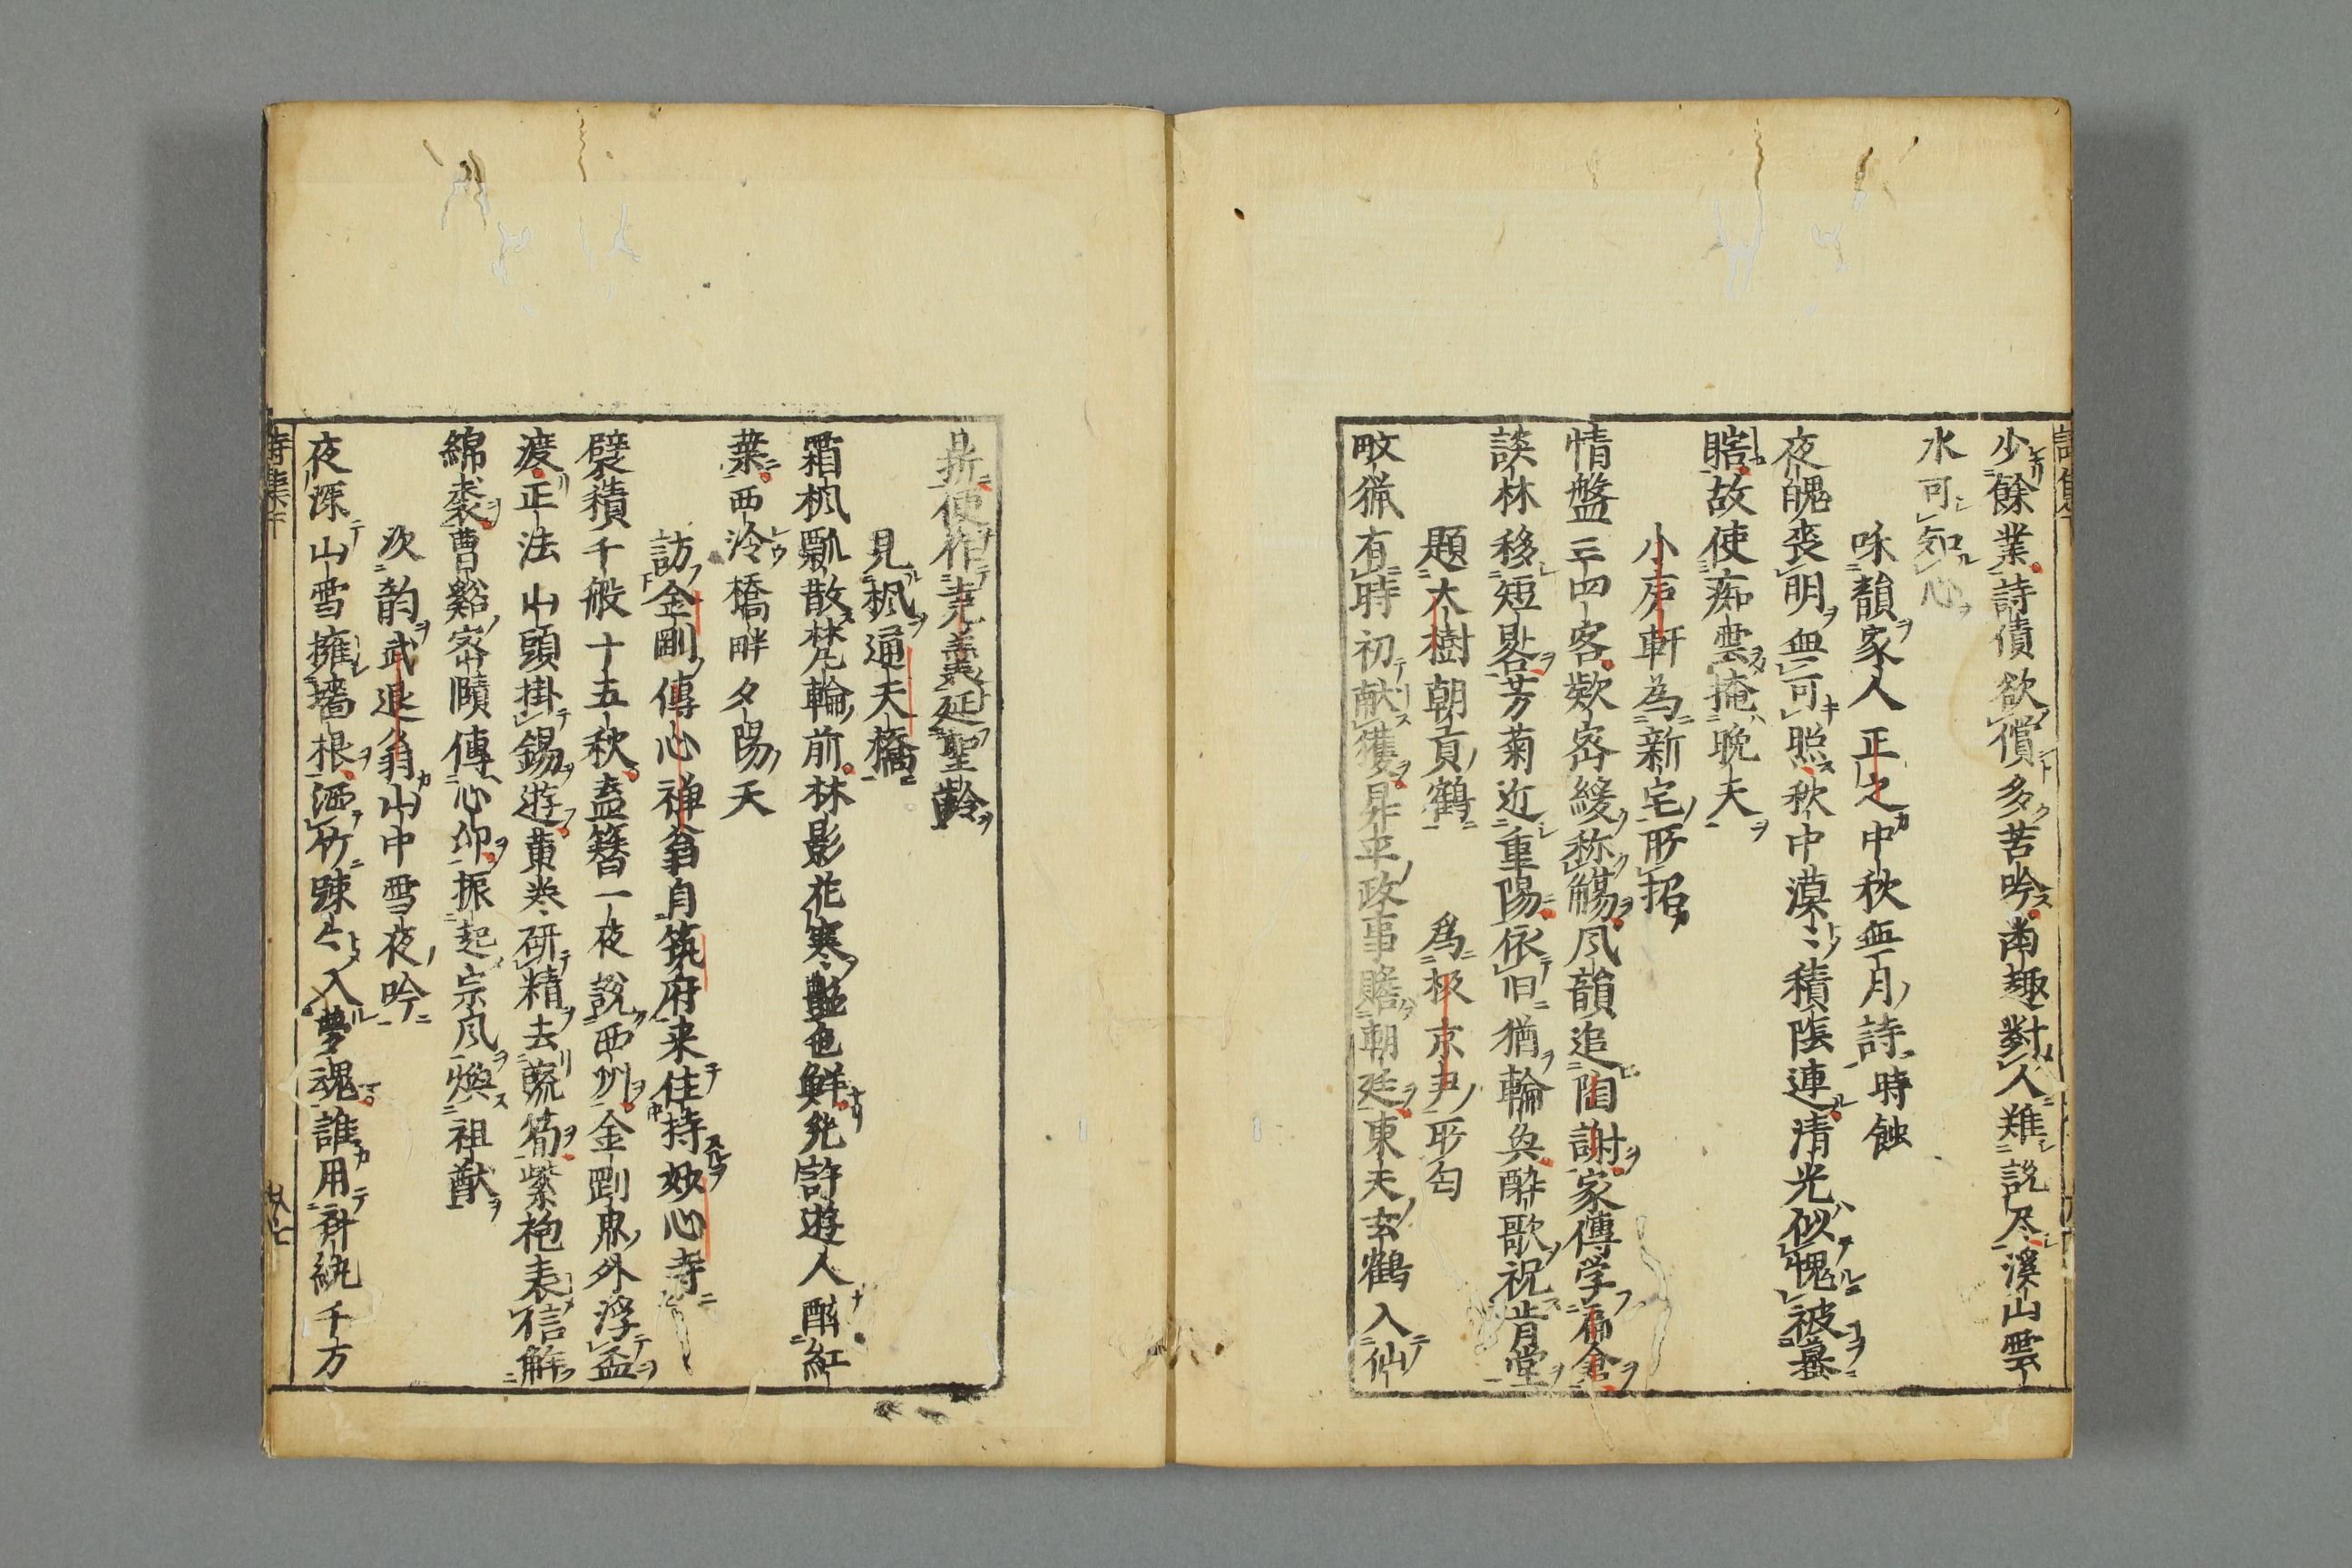 少餘業詩債欲償多苦吟南趣對人難説尽溪山雲
水可知心
咏韻家人正之中秋無月詩時蝕
夜魄喪明無可照秋中漠〻積陰連清光似愧被蟇
瞎故使痴雲掩晩天
小戸軒為新宅所招
情盤三四客歎密緩称觴风韻追陶謝家傳学扁倉
談林移短晷芳菊近重陽依旧猶輪奐酔歌祝肯堂
題大樹朝貢鶴 為板京尹所匂
畋猟有時初献獲昇平政事贍朝廷東天玄鶴入仙
便作壽羲延聖齡
見楓通天橋
霜楓飄散梵輪前林影花寒艶色鮮先許遊人酣紅
葉西泠橋畔夕陽天
訪金剛傳心禅翁自筑府来住持妙心寺
襞積千般十五秋盍簪一夜說西州金剛界外浮盃
渡正法山頭掛錫遊黄巻研精去蔬筍紫袍表信解
綿裘曹谿密賾傳心印振起宗风煥祖猷
次韵武退翁山中雪夜吟
夜深山雪擁墻根洒竹踈〻入夢魂誰用斉紈千万
詩集下